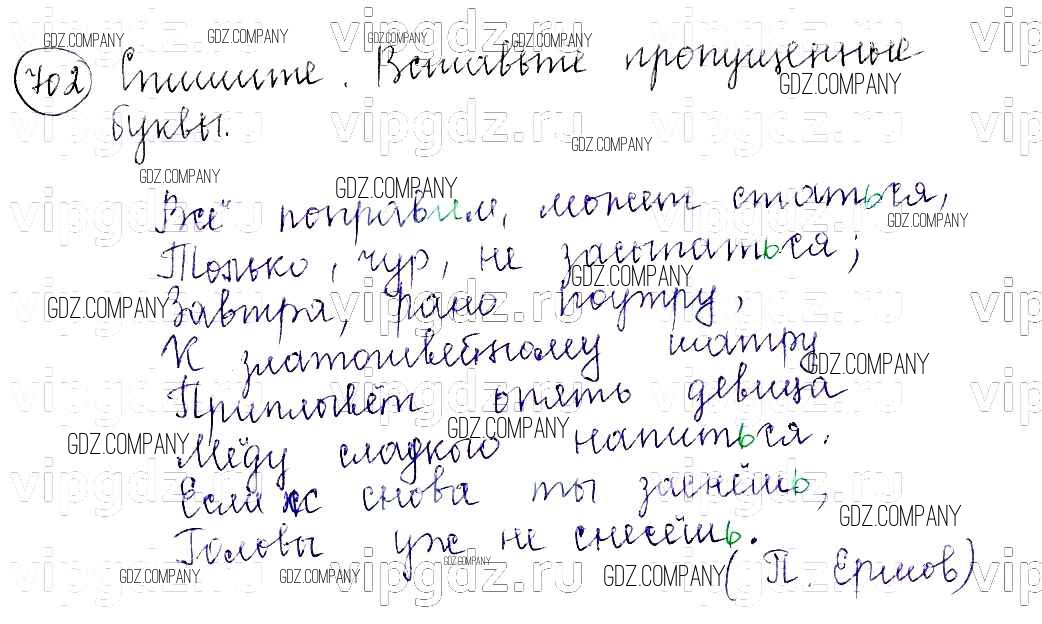 702 Спишите. Вставьте пропущенные
буквы.
Всё поправим, может статься,
Только, чур, не засыпаться;
Завтра, рано поутру,
К златошвейному шатру
Приплывёт опять девица
Мёду сладкого напиться.
Если ж снова ты заснёшь,
Головы уж не снесёшь.
(П. Ершов)
GDZ.COMPANY
vipgdz.ru